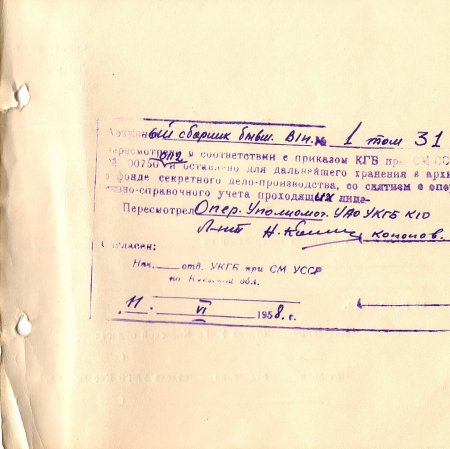 Архивный сборник бывш. ВIн. № 1 том 31
Пересмотрено в соответствии с приказом КГБ при СМ СС
№ 00750 и оставлено для дальнейшего хранения в архи
в фонде секретного дело-производства, со снятием с опер
тивно-справочного учета проходящих лица
Пересмотрел Опер. Уполномоч. УАО УКГБ К/О
Л-нт Кононов.
Согласен:
Нач. отд. УКГБ при СМ УССР
по Киевской обл.
11. VI 1958. г.